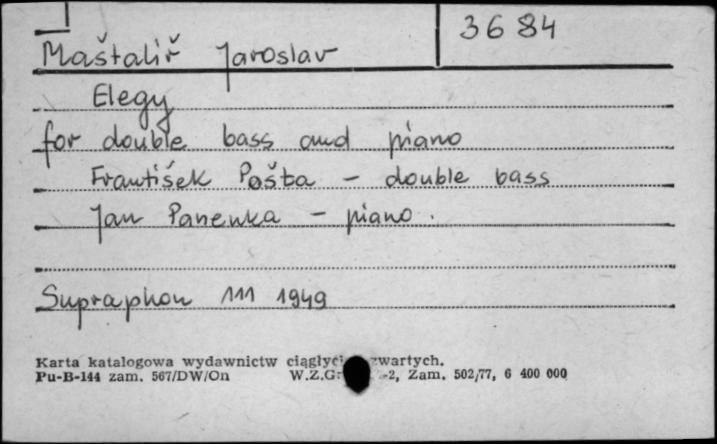 3684
Maštaliř Jaroslav
Elegy
for double bass and piano
František Pošta - double bass
Jan Panenka - piano.
Supraphon 111 1949
Karta katalogowa wydawnictw
Pu-B-144 zam. 567/DW/On -2, Zam. 502/77, 6 400 000